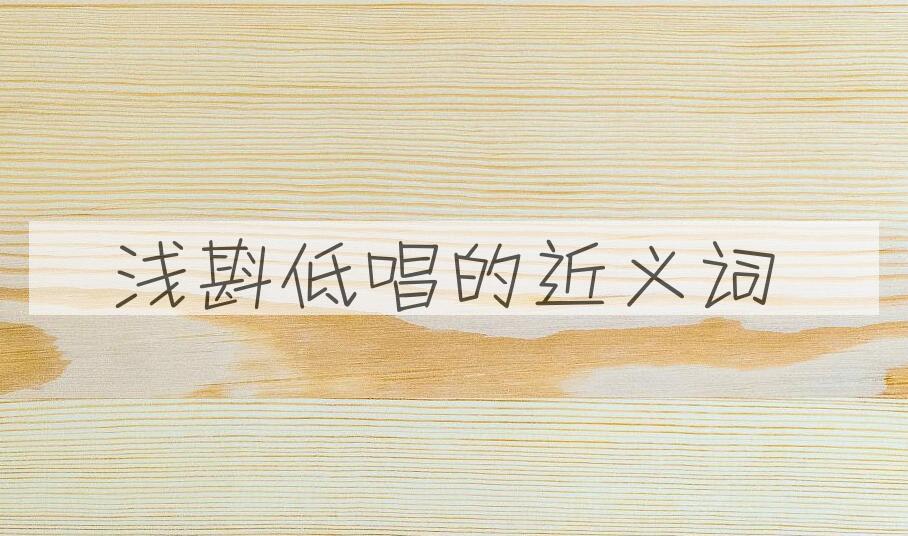 浅斟低唱的近义词